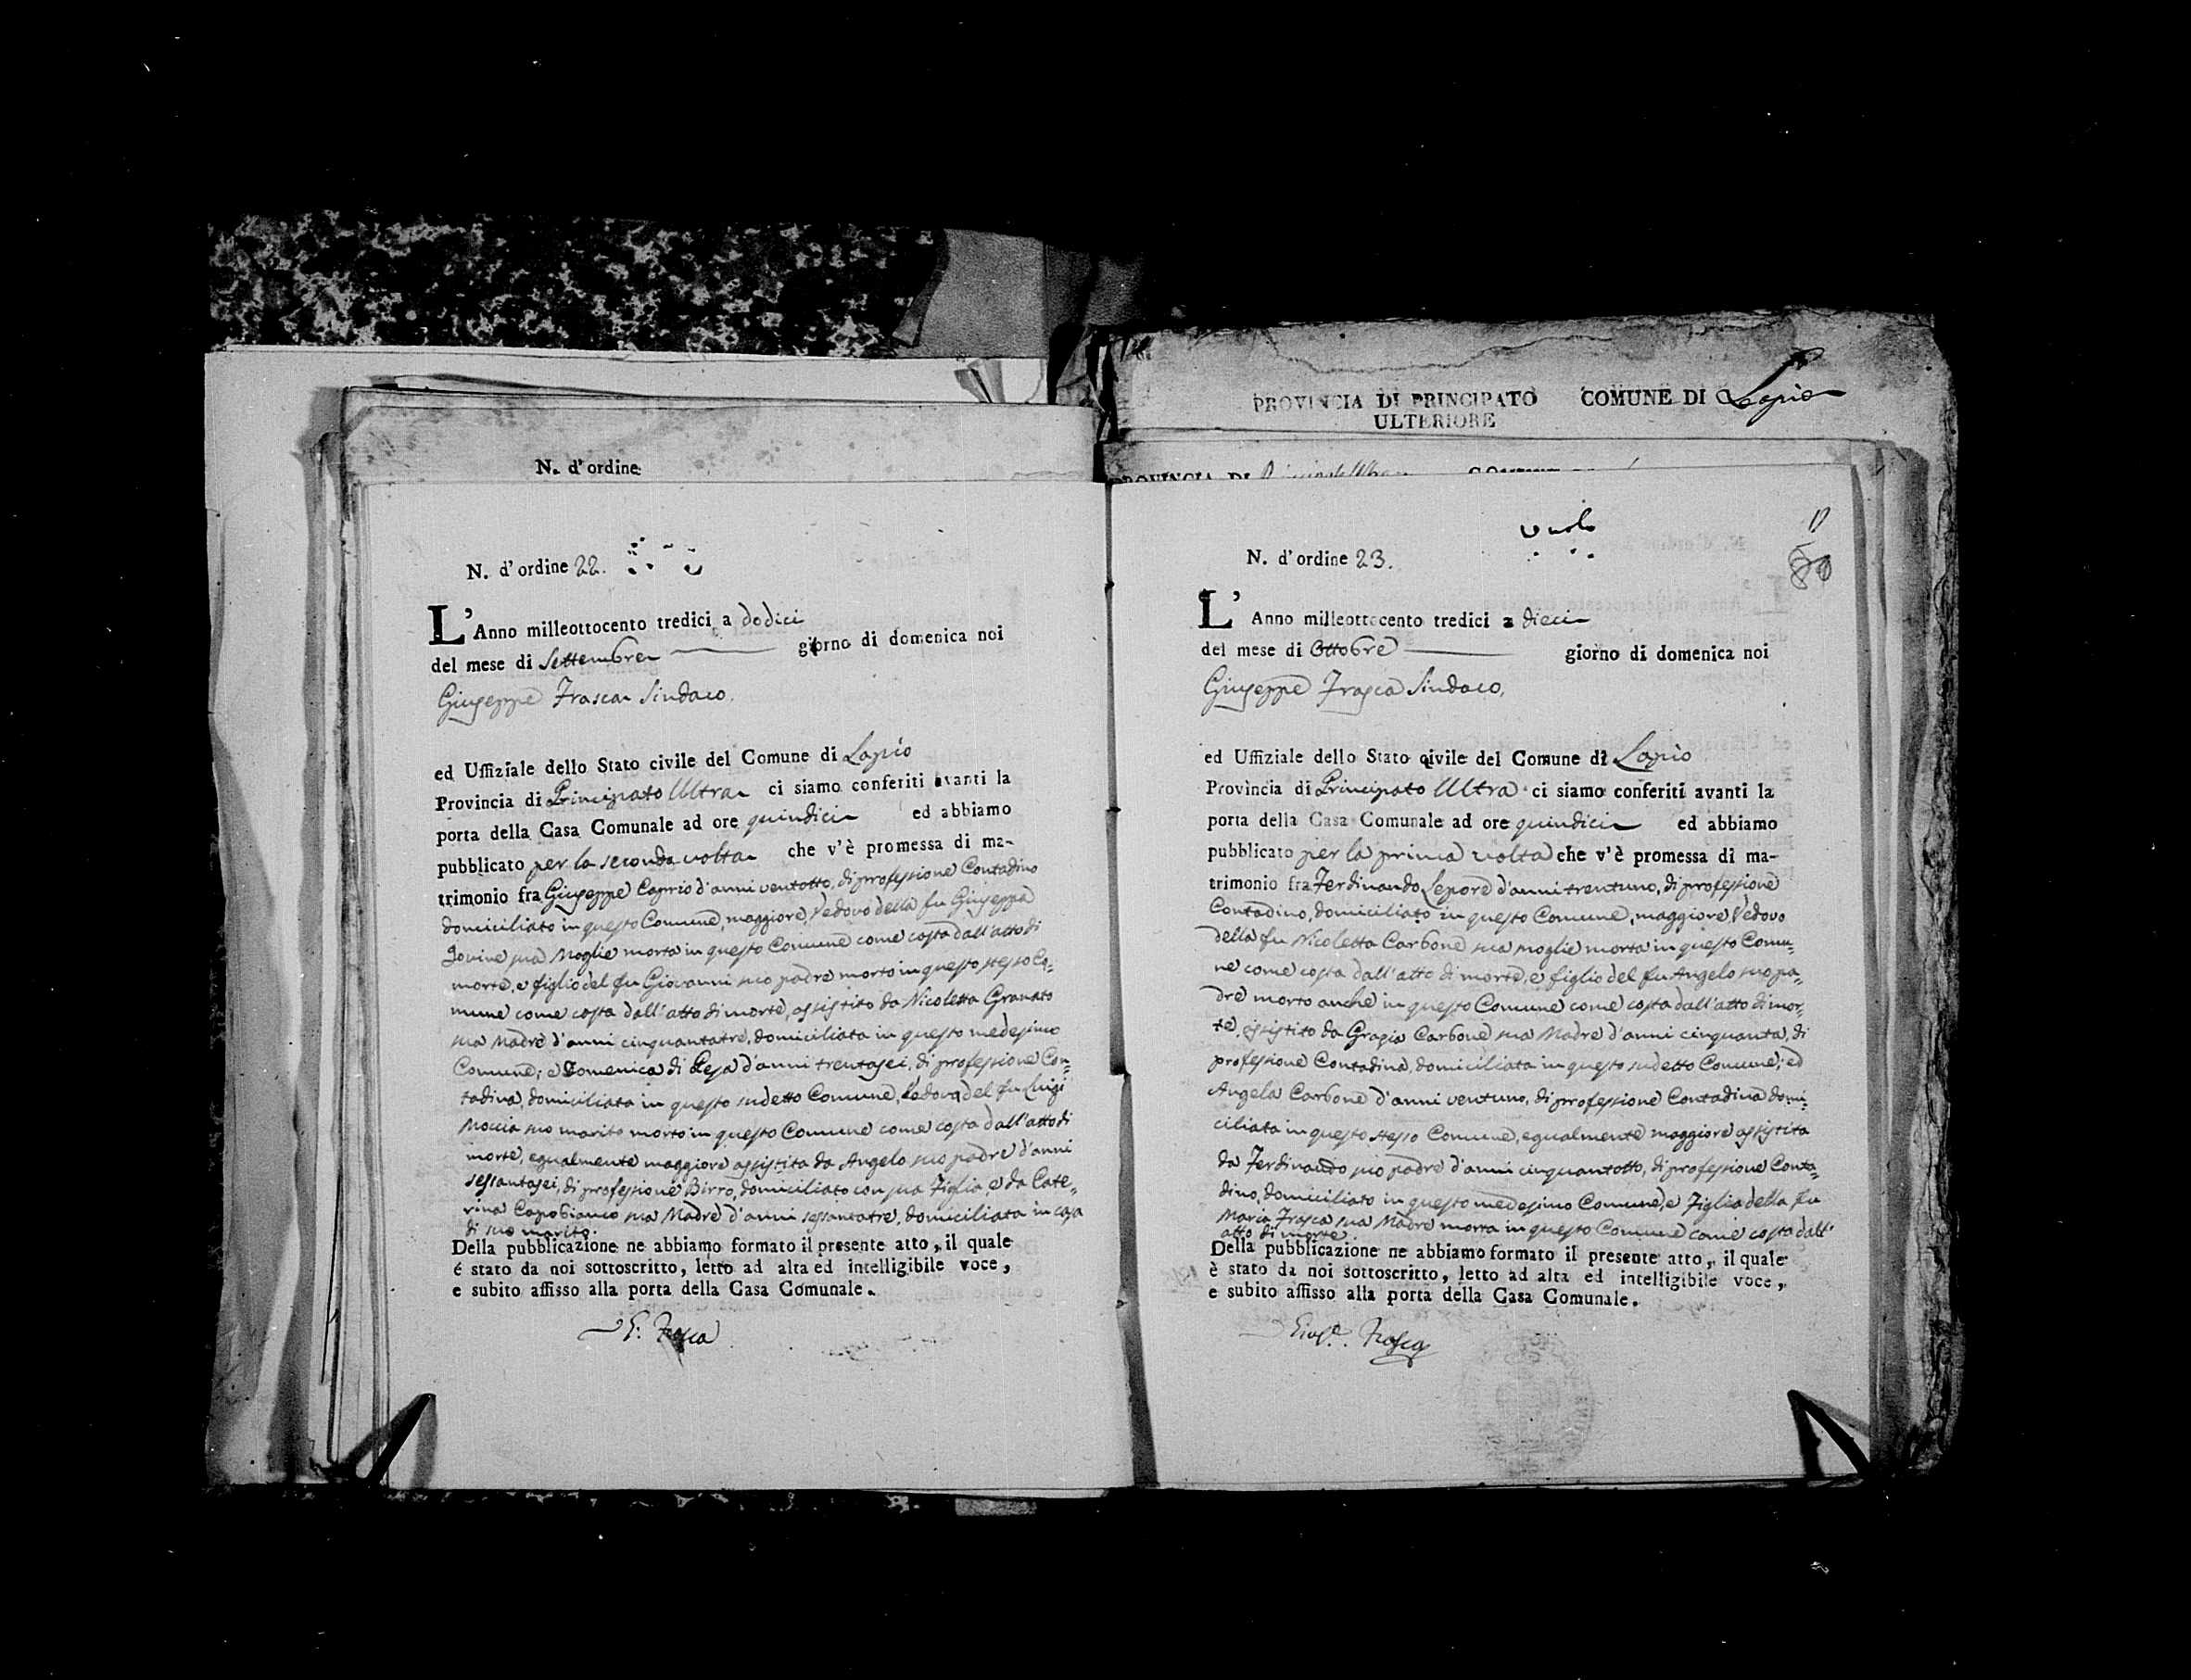 PROVINCIA DI PRINCIPATO COMUNE DI Lapio
ULTERIORE
N. d'ordine
PROVINCIA DI
N. d'ordine 22.
L'Anno milleottocento tredici a dodici
del mese di Settembre giorno di domenica noi
Giuseppe Frasca Sindaco.
ed Uffiziale dello Stato civile del Comune di Lapio
Provincia di Principato Ultra ci siamo conferiti avanti la
porta della Casa Comunale ad ore quindici ed abbiamo
pubblicato per la seconda volta che v'è promessa di ma-
trimonio fra Giuseppe Caprio d'anni ventotto, di professione Contadino
domiciliato in questo Comune, maggiore, Vedovo della fu Giuseppa
Iovine sua Moglie morta in questo Comune come costa dall'atto di
morte, e figlio del fu Giovanni suo padre morto in questo stesso Co=
mune come costa dall'atto di morte, assistito da Nicoletta Granato
sua Madre d'anni cinquantatre, domiciliata in questo medesimo
Comune; e Domenica di d'anni trentasei, di professione Con=
tadina, domiciliata in questo sudetto Comune, Vedova del fu Luigi
Moccia suo marito morto in questo Comune come costa dall'atto di
morte, egualmente maggiore assistita da Angelo suo padre d'anni
sessantasei, di professione Birro, domiciliato con sua Figlia, e da Cate=
rina Capobianco sua Madre d'anni sessantatre, domiciliata in casa
di suo marito.
Della pubblicazione ne abbiamo formato il presente atto, il quale
é stato da noi sottoscritto, letto ad alta ed intelligibile voce,
e subito affisso alla porta della Casa Comunale.
G: Frasca
N. d'ordine 23.
L'Anno milleottocento tredici a dieci
del mese di Ottobre giorno di domenica noi
Giuseppe Frasca Sindaco,
ed Uffiziale dello Stato civile del Comune di Lapio
Provincia di Principato Ultra ci siamo conferiti avanti la
porta della Casa Comunale ad ore quindici ed abbiamo
pubblicato per la prima volta che v'è promessa di ma-
trimonio fra Ferdinando Lepore d'anni trentuno, di professione
Contadino, domiciliato in questo Comune, maggiore, Vedovo
della fu Nicoletta Carbone sua moglie morta in questo Comu=
ne come costa dall'atto di morte, e figlio del fu Angelo suo pa=
dre morto anche in questo Comune come costa dall'atto di mor=
te, assistito da Grazia Carbone sua Madre d'anni cinquanta, di
professione Contadina, domiciliata in questo sudetto Comune; ed
Angela Carbone d'anni ventuno, di professione Contadina domi=
ciliata in questo stesso Comune, egualmente maggiore assistita
da Ferdinando suo padre d'anni cinquantotto, di professione Conta=
dino, domiciliato in questo medesimo Comune, e Figlia della fu
Maria Frasca sua Madre morta in questo Comune come costa dall'
atto di morte.
Della pubblicazione ne abbiamo formato il presente atto, il quale
è stato da noi sottoscritto, letto ad alta ed intelligibile voce,
e subito affisso alla porta della Casa Comunale.
Gius.e Frasca